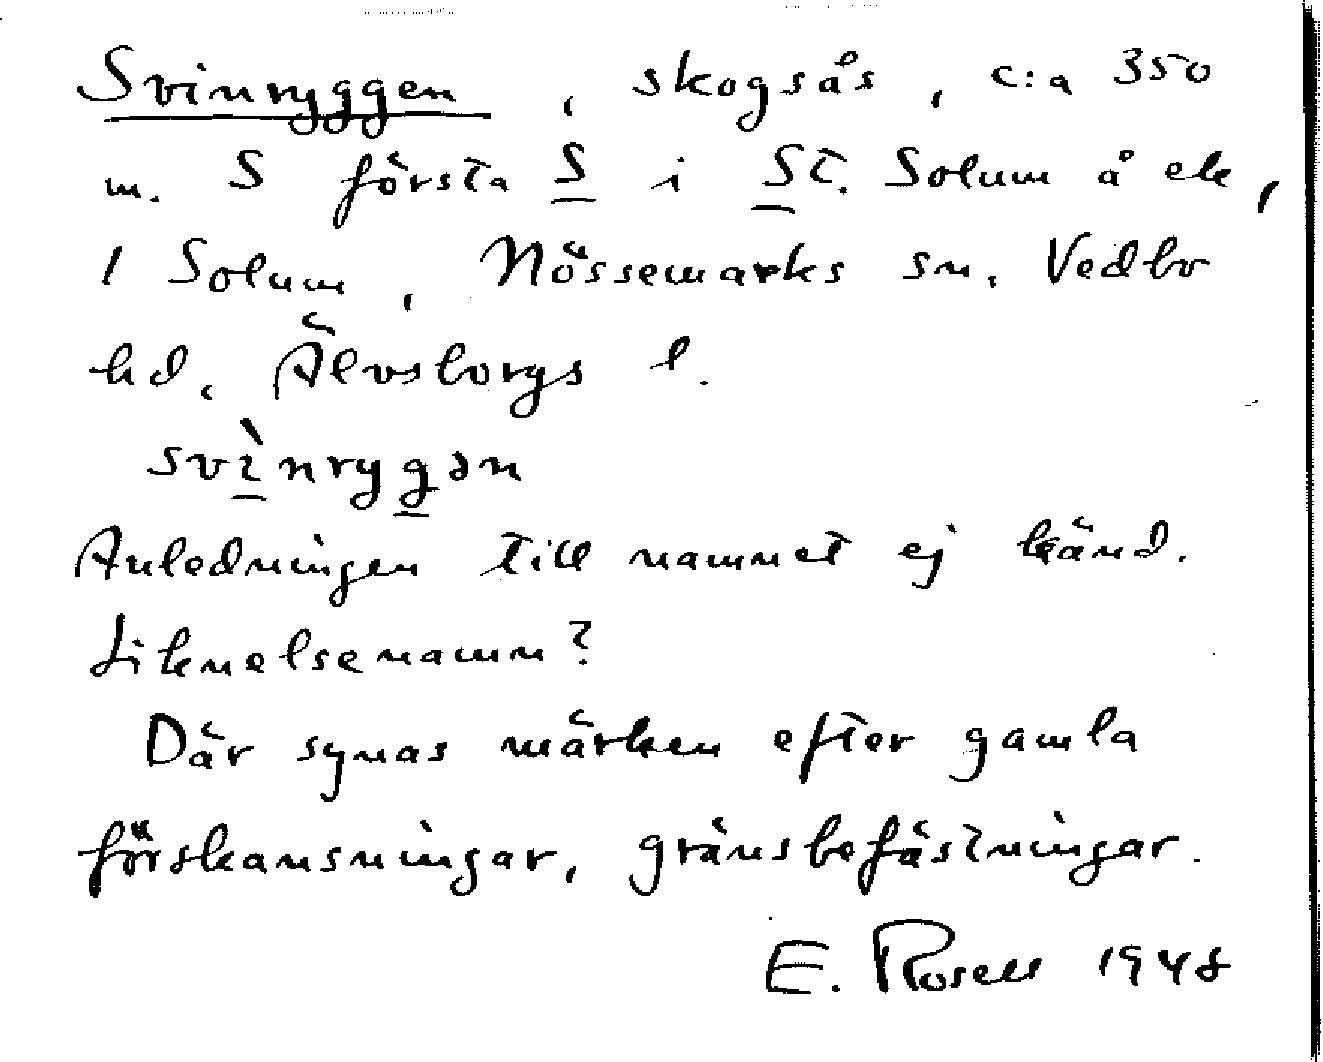 Svinryggen, skogsås, c:a 350
m. S första S i St. Solum å ek,
1 Solum, Nössemarks sn. Vedbo
hd. Älvsborgs l.
svìnrygən
Anledningen till namnet ej känd.
Liknelsenamn?
Där synas märken efter gamla
förskansningar, gränsbefästningar.
E. Rosell 1948